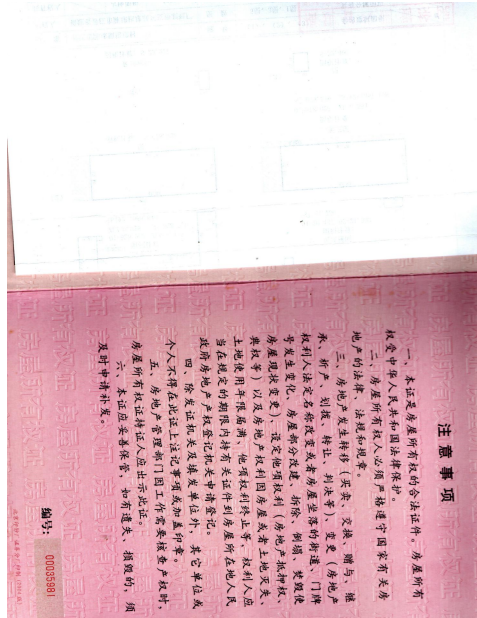 注意事项
一、本证是房屋所有权的合法证件。房屋所有
权受中华人民共和国法律保护。
二、房屋所有权人必须严格遵守国家有关房
地产的法律、法规和规章。
三、房地产发生转移（买卖、交换、赠与、继
承、析产、划拨、转让、判决等）、变更（房地产
权利人法定名称改变或者房屋坐落的街道、门牌
号发生变化、房屋部分改建、拆除、倒塌、焚毁使
房屋现状变更）、设定他项权利（房地产抵押权、
典权等）以及房地产权利因房屋或者土地灭失、
土地使用年限届满、他项权利终止等，权利人应
当在规定的期限内持有关证件到房屋所在地人民
政府房地产产权登记机关申请登记。
四、除发证机关及填发单位外，其它单位或
个人不得在此证上注记事项或加盖印章。
五、房地产管理部门因工作需要核查产权时，
房屋所有权证持证人应出示此证。
六、本证应妥善保管，如有遗失、损毁的，须
及时申请补发。
编号：00035981